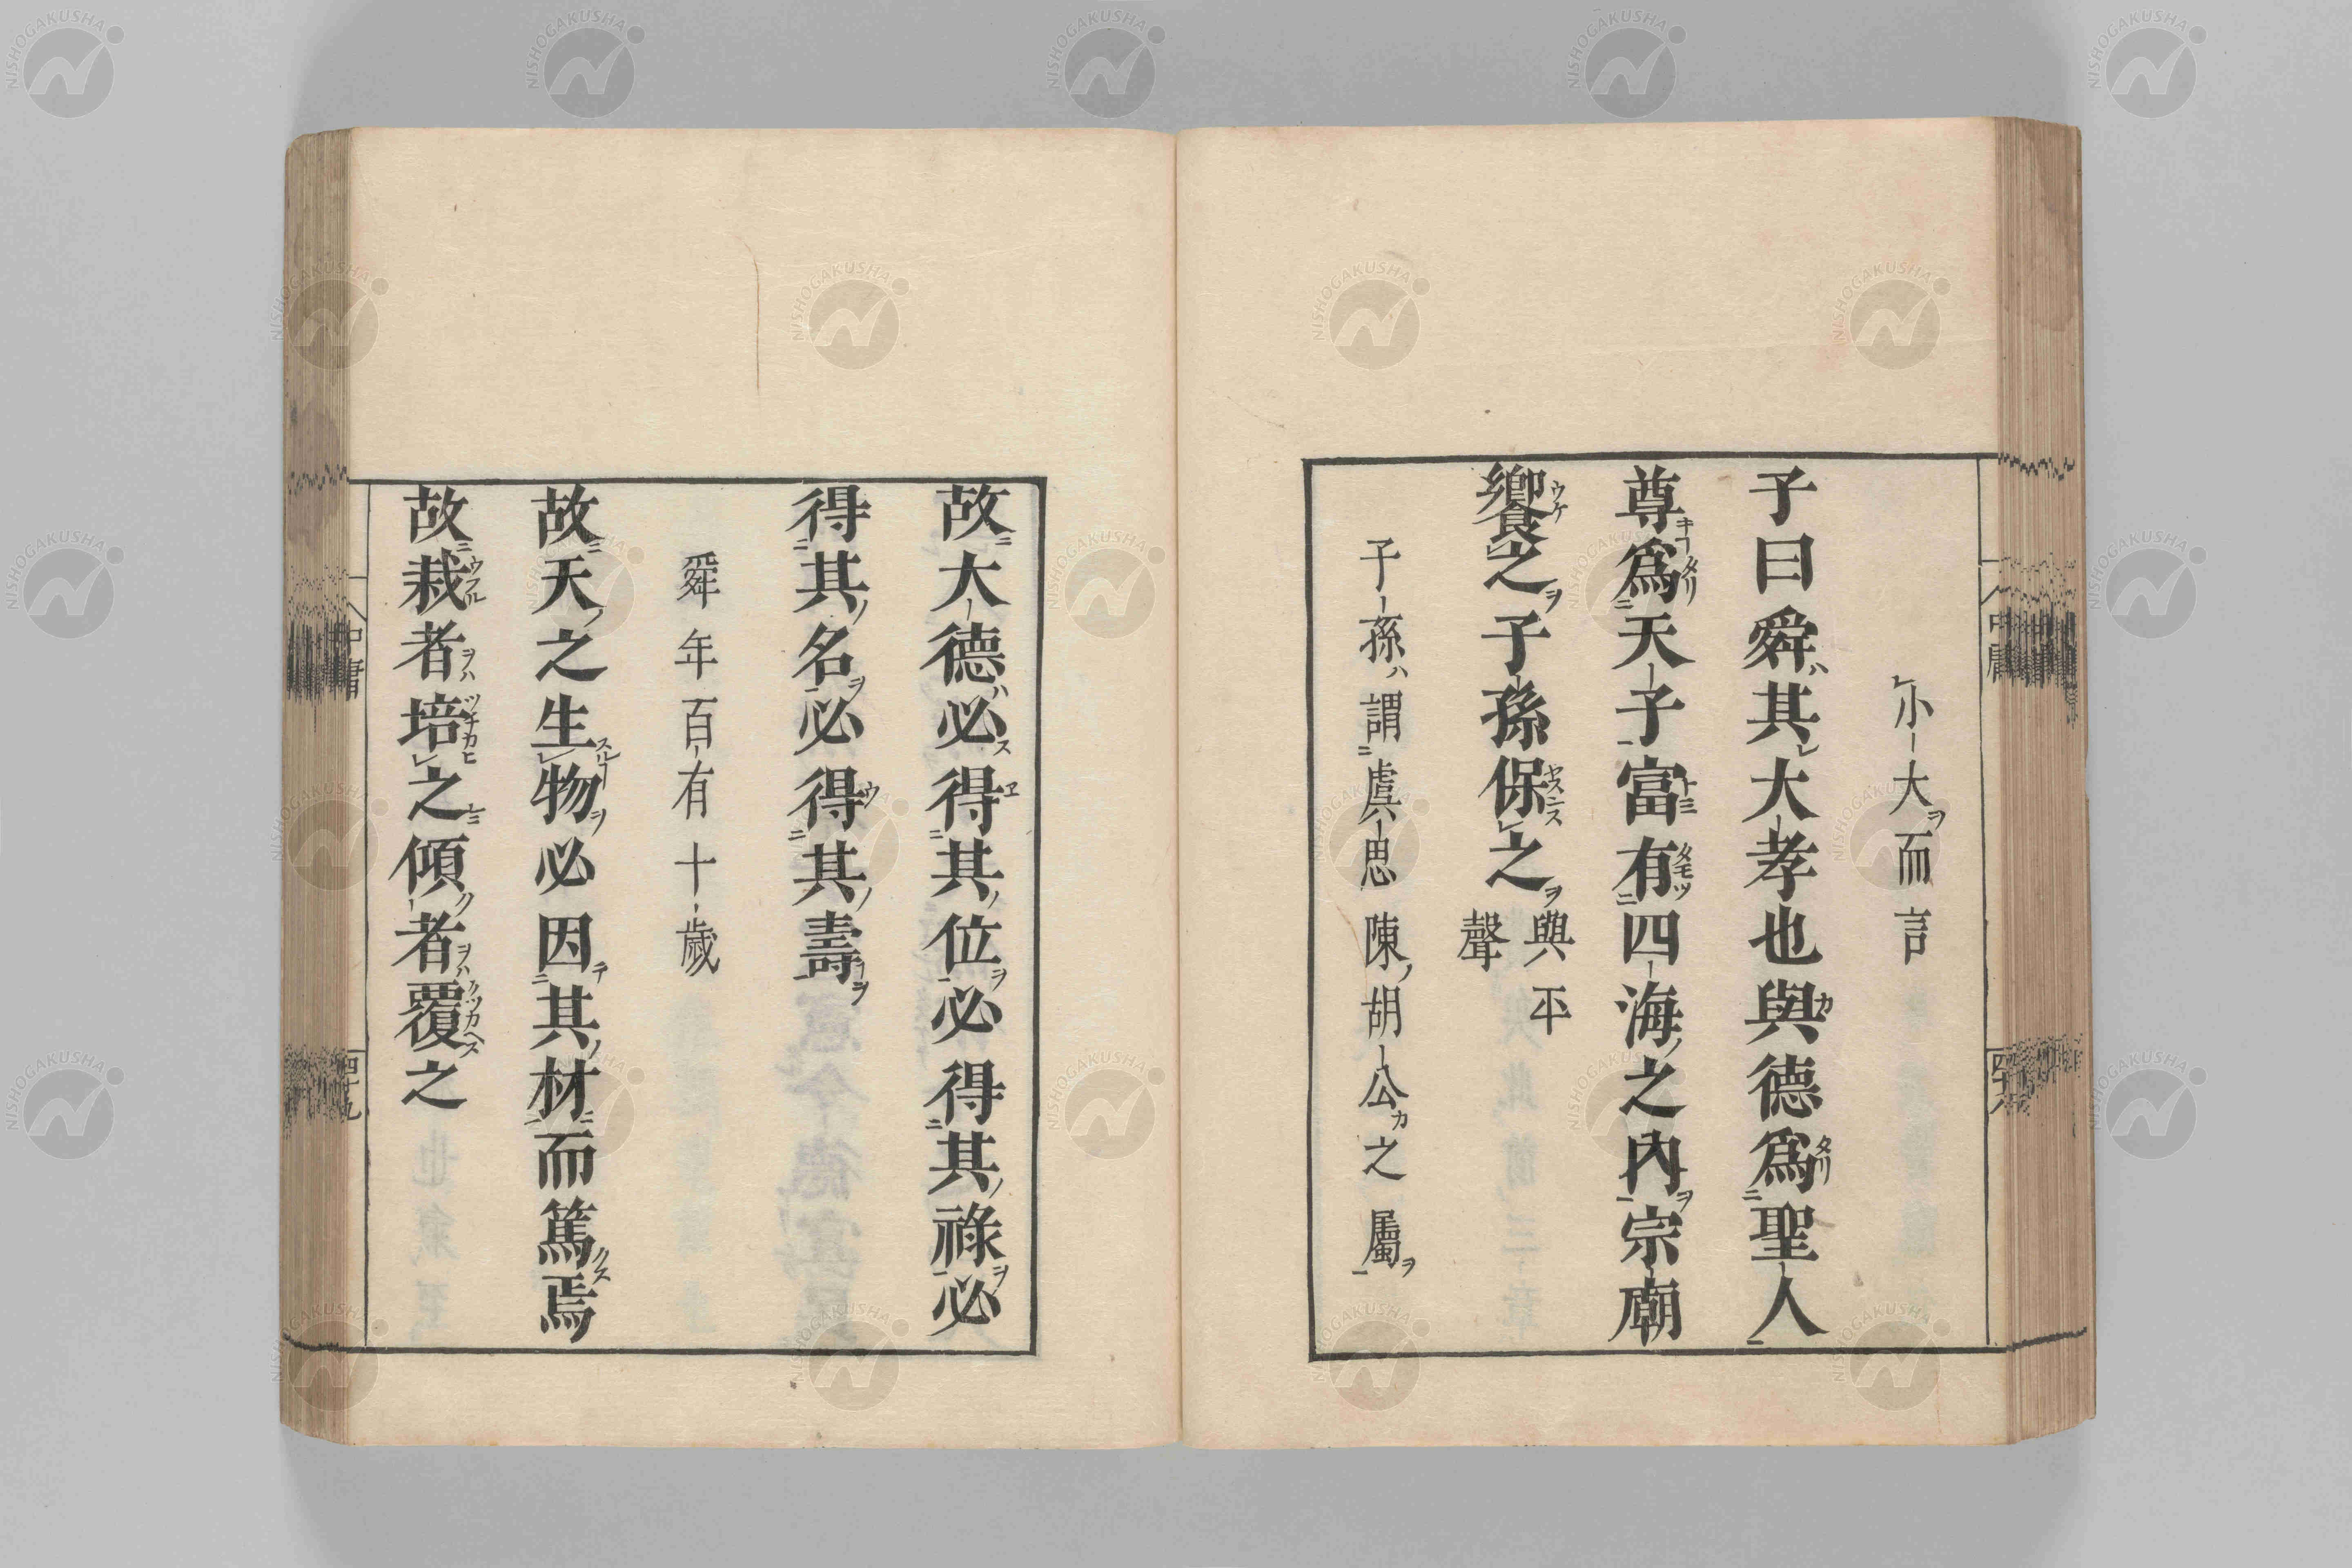 小大而言
子曰舜其大孝也與德爲聖人
尊爲天子富有四海之內宗廟
饗之子孫保之 與平聲
子孫謂虞思陳胡公之屬
故大德必得其位必得其祿必
得其名必得其壽
舜年百有十歲
故天之生物必因其材而篤焉
故栽者培之傾者覆之
中庸
四十九
NISHOGAKUSHA